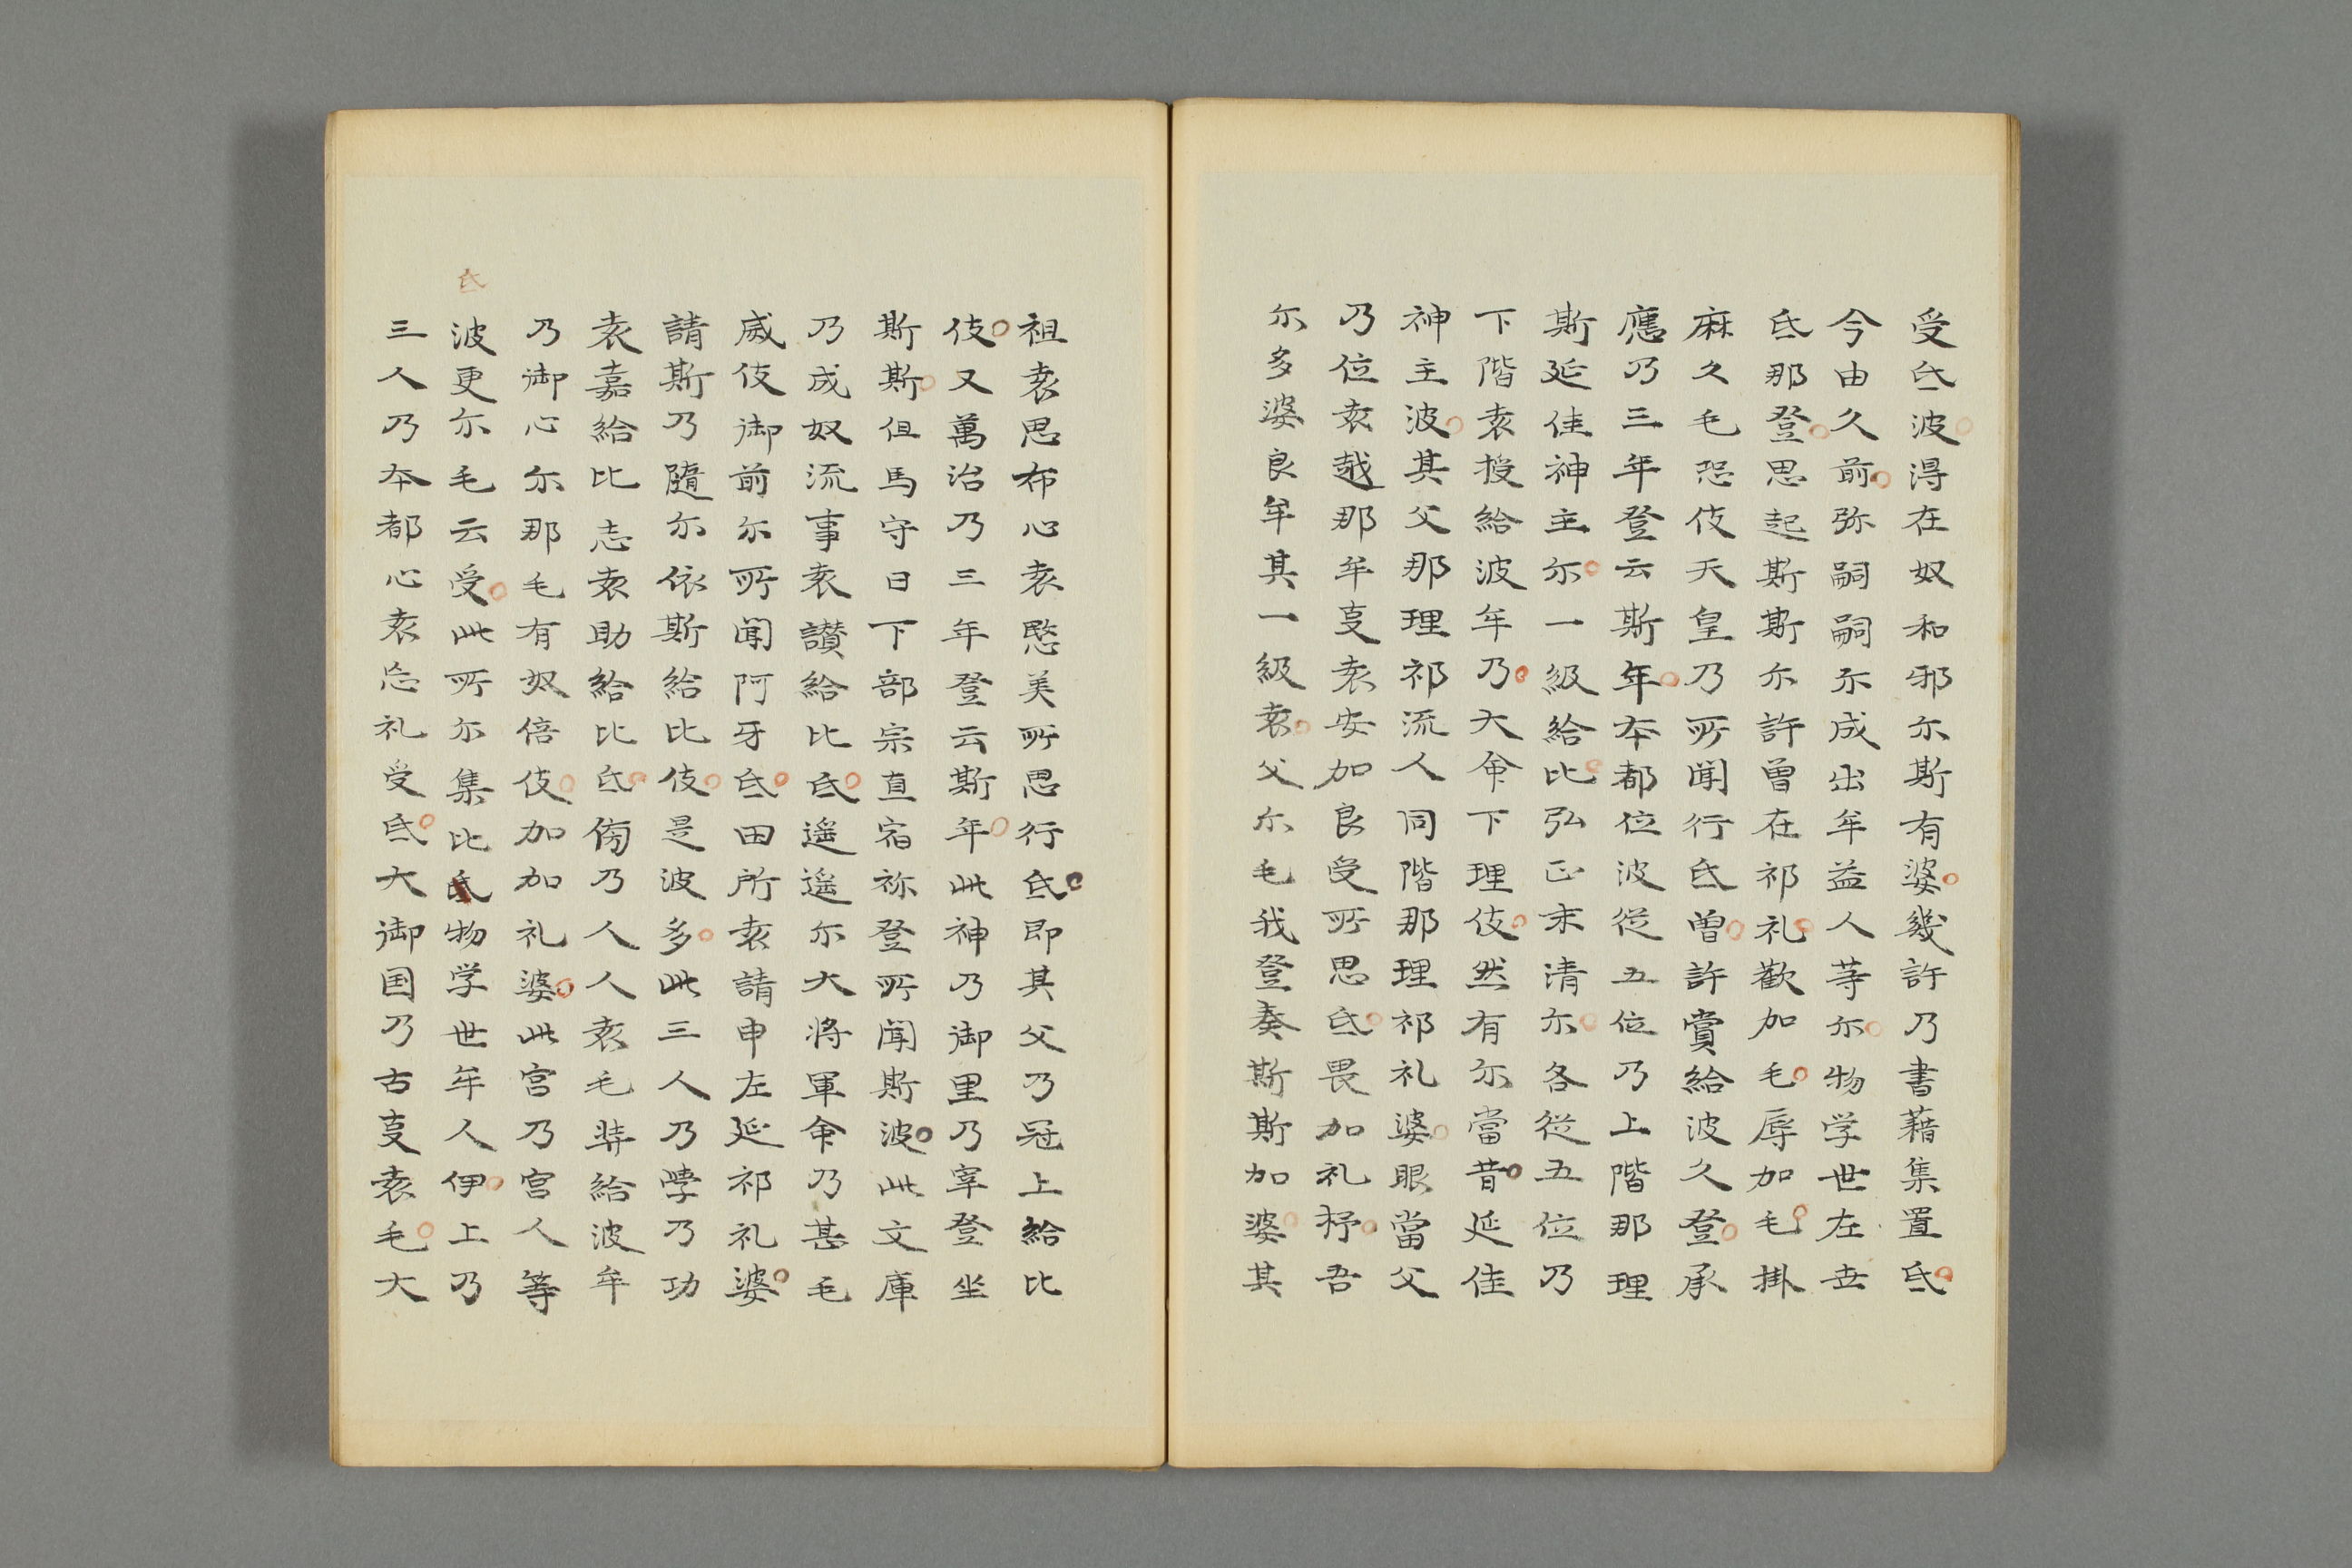 受氐波淂在奴和邪尓斯有婆幾許乃書藉集置氐
今由久前弥嗣嗣尓成出牟益人䓁尓物学世左世
氐那登思起斯斯尓許曽在祁礼歡加毛辱加毛掛
麻久毛恐伎天皇乃所聞行氐曽許賞給波久登承
應乃三年登云斯年夲都位波従五位乃上階那理
斯延佳神主尓一級給比弘正末清尓各従五位乃
下階袁授給波牟乃大命下理伎然有尓當昔延佳
神主波其父那理祁流人同階那理祁礼婆眼當父
乃位袁越那牟㕝袁安加良受所思氐畏加礼杼吾
尓多婆良牟其一級袁父尓毛我登奏斯斯加婆其
祖袁思布心袁愍美所思行氐即其父乃冠上給比
伎又萬治乃三年登云斯年此神乃御里乃宰登坐
斯斯但馬守日下部宗直宿祢登所聞斯波此文庫
乃成奴流事袁讃給比氐遥遥尓大将軍命乃甚毛
威伎御前尓所聞阿牙氐田所袁請申左延祁礼婆
請斯乃隨尓依斯給比伎是波多此三人乃學乃功
袁嘉給比志袁助給比氐傍乃人人袁毛奨給波牟
乃御心尓那毛有奴倍伎加加礼婆此宮乃宮人等
氐
波更尓毛云受此所尓集比氐物学世牟人伊上乃
三人乃夲都心袁忘礼受氐大御国乃古㕝袁毛大